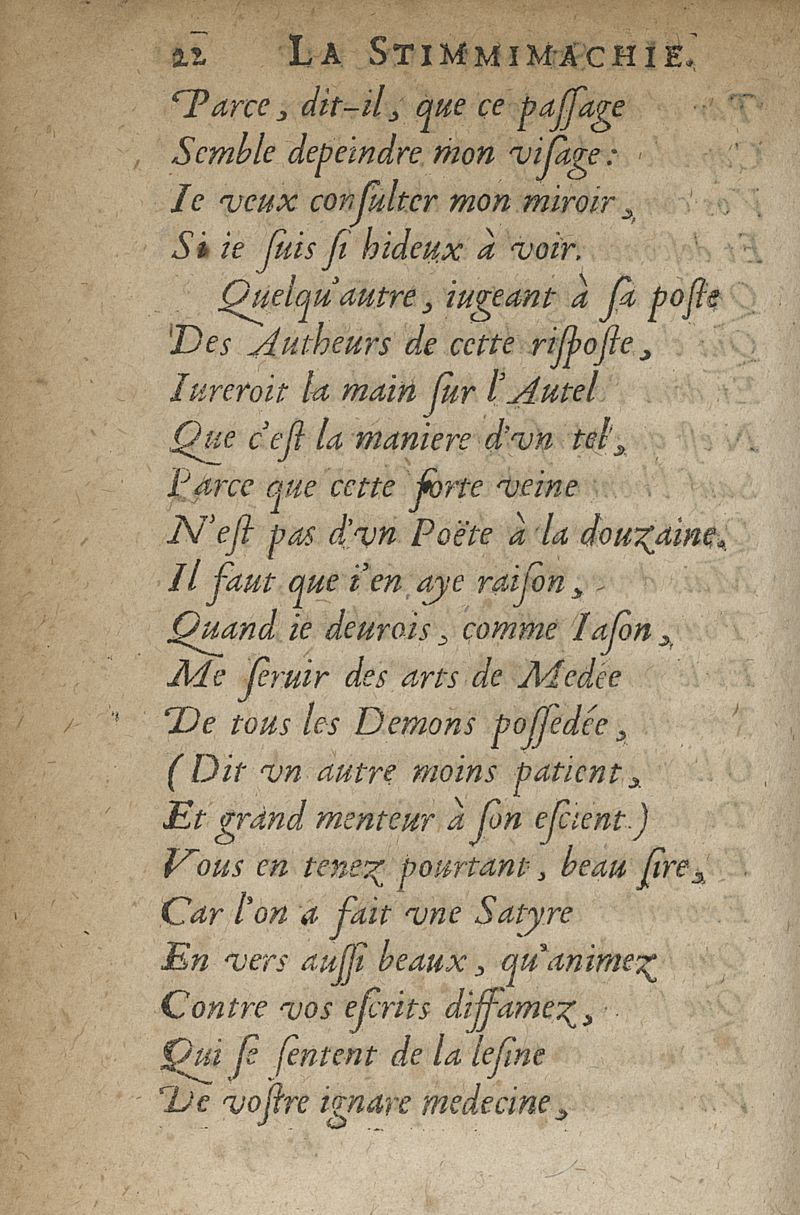 22 LA STIMMIMACHIE.
Parce, dit-il, que ce paſſage
Semble depeindre mon viſage:
Ie veux conſulter mon miroir,
Si ie ſuis ſi hideux à voir.
Quelqu'autre, iugeant à ſa poſte
Des Autheurs de cette riſpoſte,
Iureroit la main ſur l'Autel
Que c'eſt la maniere d'vn tel,
Parce que cette forte veine
N'eſt pas d'vn Poëte à la douzaine.
Il faut que i'en aye raiſon,
Quand ie deurois, comme Iaſon,
Me ſeruir des arts de Medée
De tous les Demons poſſedée,
(Dit vn autre moins patient,
Et grand menteur à ſon eſcient.)
Vous en tenez pourtant, beau ſire,
Car l'on a fait vne Satyre
En vers auſſi beaux, qu'animez
Contre vos eſcrits diffamez,
Qui ſe ſentent de la leſine
De voſtre ignare medecine,